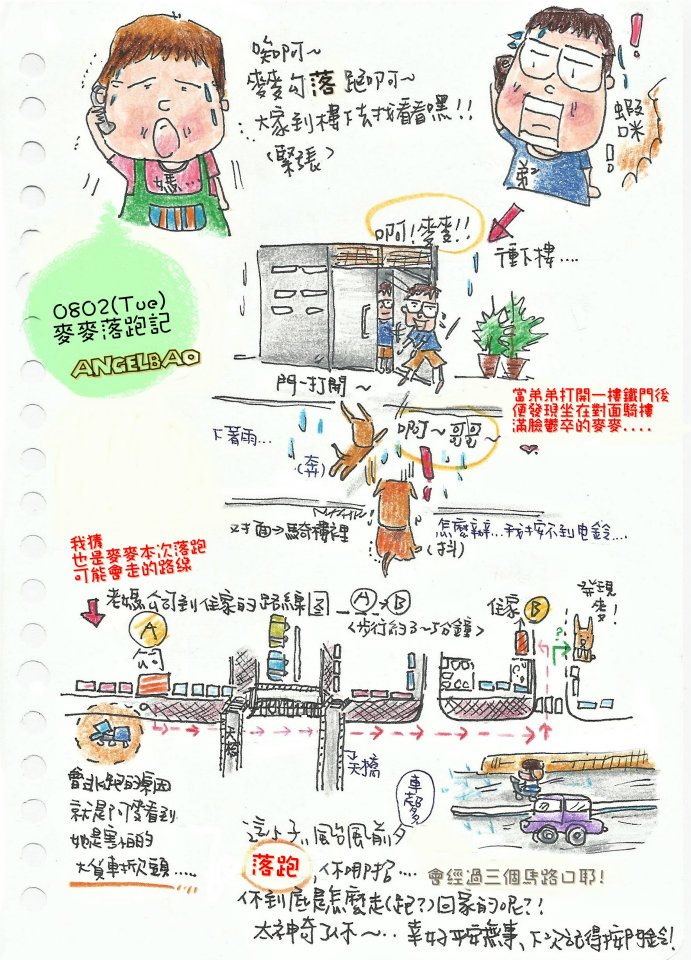 唉呵~
麥麥勾落跑呵~
大家到樓下去找看看嘿!!
<緊張>
媽…
蝦咪
!
弟
啊!麥麥!!
衝下樓....
0802(Tue)
麥麥落跑記
ANGELBAO
門一打開~
當弟弟打開一樓鐵門後
便發現坐在對面騎樓
滿臉鬱卒的麥麥....
下著雨...
(奔)
啊~哥哥~
對面→騎樓裡
怎麼辦...我按不到电鈴....
(抖)
我猜
也是麥麥本次落跑
可能會走的路線
老媽公司到住家的路線圖 A→B
<步行約3~5分鐘>
A
住家 B
發現
麥!
?
天橋
天橋
會跑的原因
就是阿麥看到
她是害怕的
大貨車拆頭.....
車聲
這小子,,颱風前夕
落跑,你哪招....
會經過三個馬路口耶!
你到底是怎麼走(跑?)回家的呢?!
太神奇了你~.. 幸好平安無事、下次記得按門鈴!